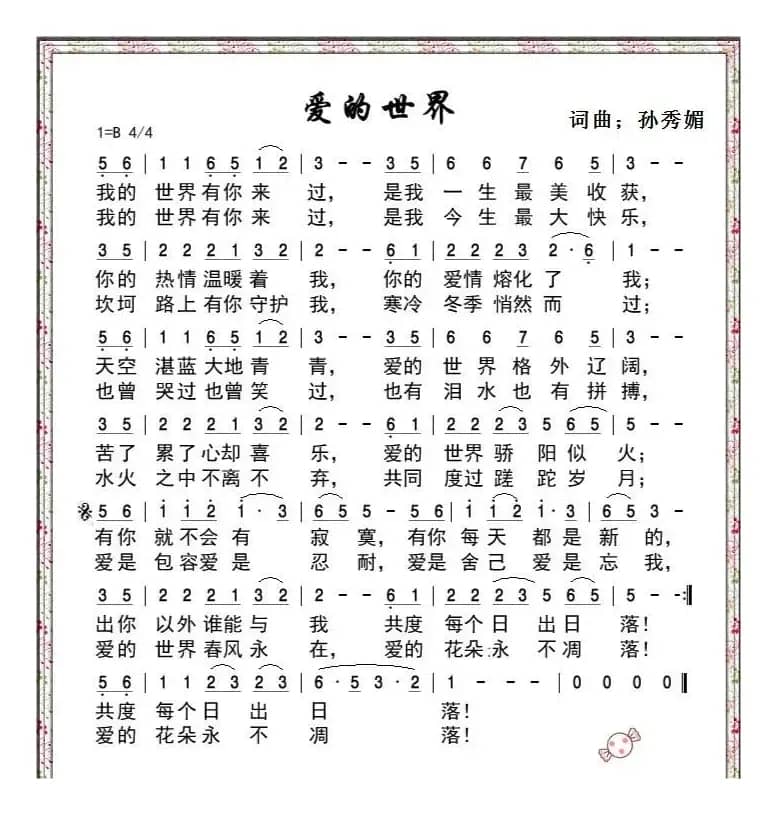 爱的世界
1=B 4/4
词曲；孙秀媚
5 6 | 1 1 6 5 1 2 | 3 - - 3 5 | 6 6 7 6 5 | 3 - -
我的 世界有你来 过， 是我 一生最美收获，
我的 世界有你来 过， 是我 今生最大快乐，
3 5 | 2 2 2 1 3 2 | 2 - - 6 1 | 2 2 2 3 2 · 6 | 1 - -
你的 热情温暖着 我， 你的 爱情熔化了 我；
坎坷 路上有你守护 我， 寒冷 冬季悄然而 过；
5 6 | 1 1 6 5 1 2 | 3 - - 3 5 | 6 6 7 6 5 | 3 - -
天空 湛蓝大地青 青， 爱的 世界格外辽阔，
也曾 哭过也曾笑 过， 也有 泪水也有拼搏，
3 5 | 2 2 2 1 3 2 | 2 - - 6 1 | 2 2 2 3 5 6 5 | 5 - -
苦了 累了心却喜 乐， 爱的 世界骄阳似 火；
水火 之中不离不 弃， 共同 度过蹉跎岁 月；
5 6 | 1 1 2 1 · 3 | 6 5 5 - 5 6 | 1 1 2 1 · 3 | 6 5 3 -
有你 就不会有 寂寞， 有你每天都是新的，
爱是 包容爱是 忍耐， 爱是舍己爱是忘我，
3 5 | 2 2 2 1 3 2 | 2 - - 6 1 | 2 2 2 3 5 6 5 | 5 - - :||
出你 以外谁能与 我 共度 每个日出日 落！
爱的 世界春风永 在， 爱的 花朵永不凋 落！
5 6 | 1 1 2 3 2 3 | 6 · 5 3 · 2 | 1 - - - | 0 0 0 0 ||
共度 每个日出 日 落！
爱的 花朵永不 凋 落！